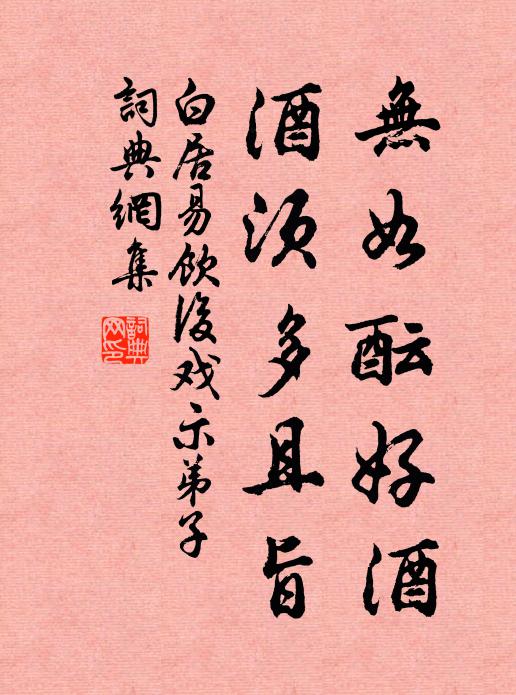 無如酝好酒
酒須多且旨
白居易飲後戏示弟子
詞典網集
詞典
网印